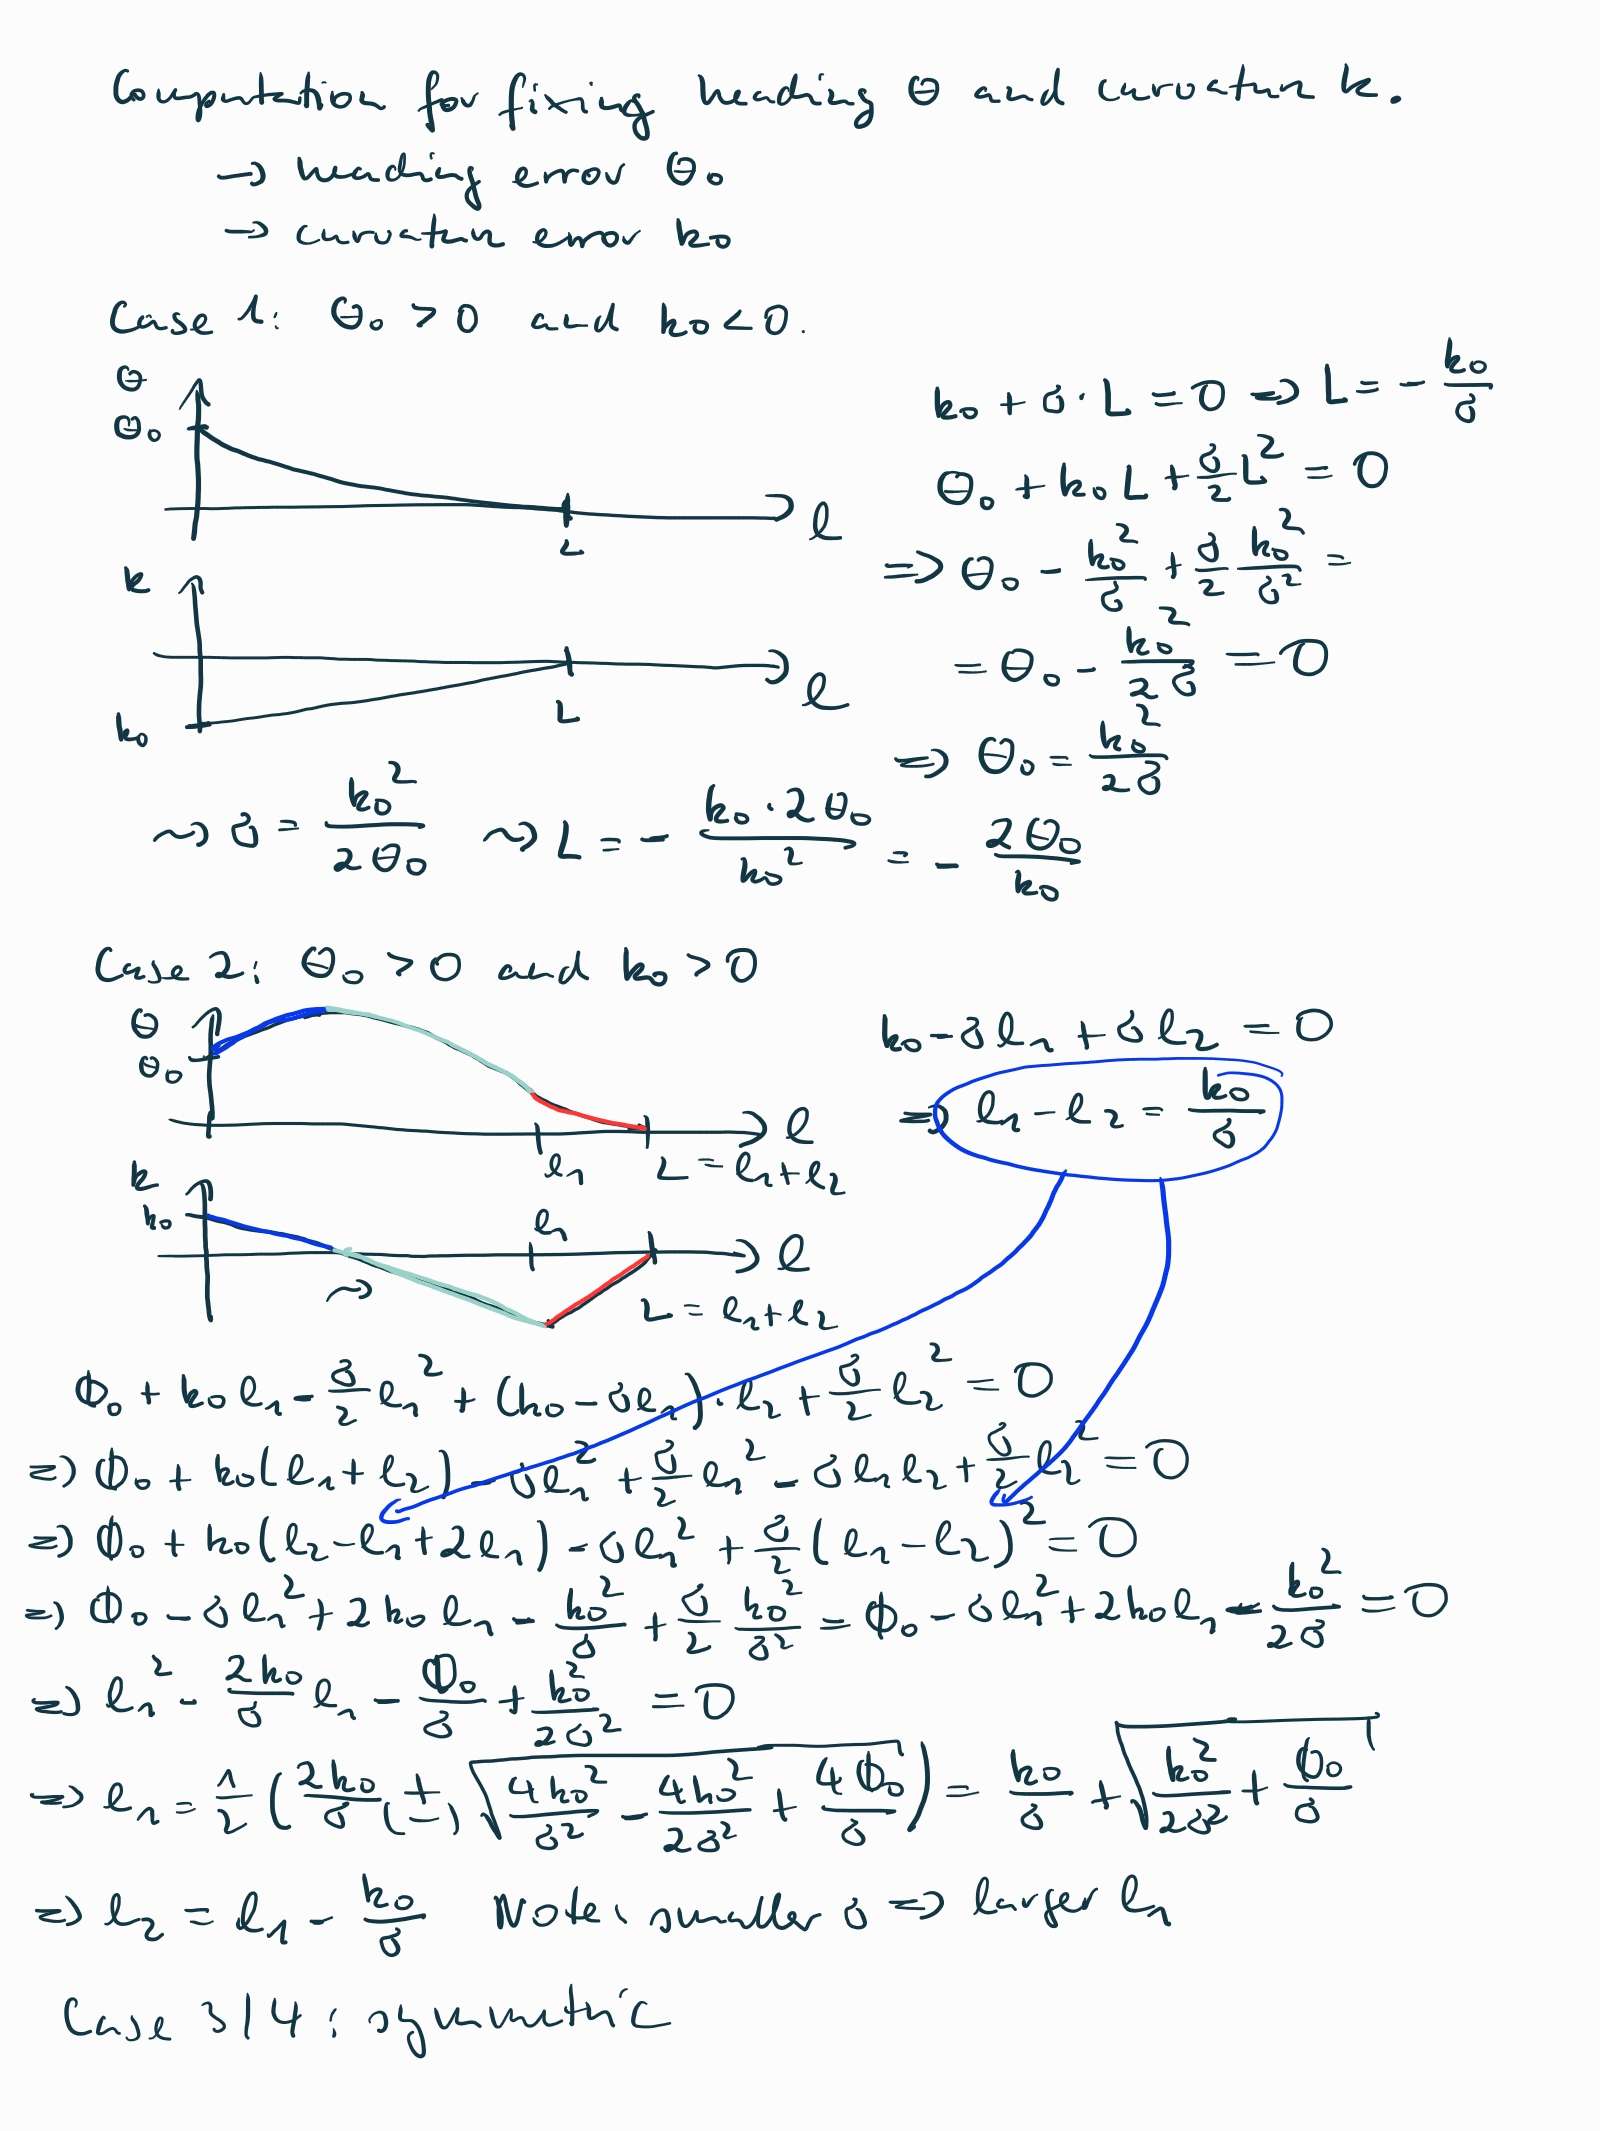 Computation for fixing heading θ and curvature k.
→ heading error θ₀
→ curvature error k₀
Case 1: θ₀ > 0 and k₀ < 0.
θ
θ₀
l
L
k
k₀
l
L
k₀ + σ · L = 0 => L = - k₀/σ
θ₀ + k₀ L + σ/2 L² = 0
=> θ₀ - k₀²/σ + σ/2 k₀²/σ² =
= θ₀ - k₀²/2σ = 0
=> θ₀ = k₀²/2σ
⇝ σ = k₀²/2θ₀ ⇝ L = - k₀ · 2θ₀/k₀² = - 2θ₀/k₀
Case 2: θ₀ > 0 and k₀ > 0
θ
θ₀
l
l₁
L = l₁+l₂
k
k₀
l₁
l
L = l₁+l₂
k₀ - σl₁ + σl₂ = 0
=> l₁ - l₂ = k₀/σ
Φ₀ + k₀l₁ - σ/2 l₁² + (k₀ - σl₁) · l₂ + σ/2 l₂² = 0
=> Φ₀ + k₀(l₁ + l₂) - σl₁² + σ/2 l₁² - σl₁l₂ + σ/2 l₂² = 0
=> Φ₀ + k₀(l₂ - l₁ + 2l₁) - σl₁² + σ/2 (l₁ - l₂)² = 0
=> Φ₀ - σl₁² + 2k₀l₁ - k₀²/σ + σ/2 k₀²/σ² = Φ₀ - σl₁² + 2k₀l₁ - k₀²/2σ = 0
=> l₁² - 2k₀/σ l₁ - Φ₀/σ + k₀²/2σ² = 0
=> l₁ = 1/2 (2k₀/σ +(-) √(4k₀²/σ² - 4k₀²/2σ² + 4Φ₀/σ)) = k₀/σ + √(k₀²/2σ² + Φ₀/σ)
=> l₂ = l₁ - k₀/σ Note: smaller σ => larger l₁
Case 3/4: symmetric